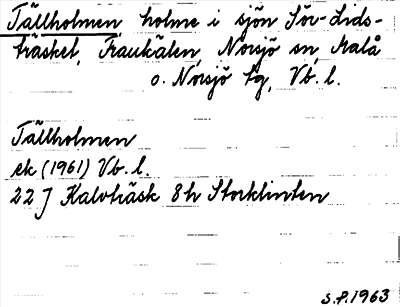 Tällholmen, holme i sjön Sör-Lids-
träsket, Fraukälen, Norsjö sn, Malå
o. Norsjö tg, Vb. l.
Tällholmen
ek (1961) Vb. l.
22 J Kalvträsk 8h Storklinten
S.P. 1963